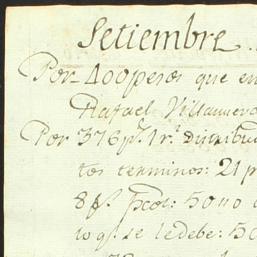 Setiembre
Por 400 pesos que en
Rafael Villanueva
Por 376 ps. 1 rs. distribu
tos terminos: 21 p
8 ps.
se le debe: 50